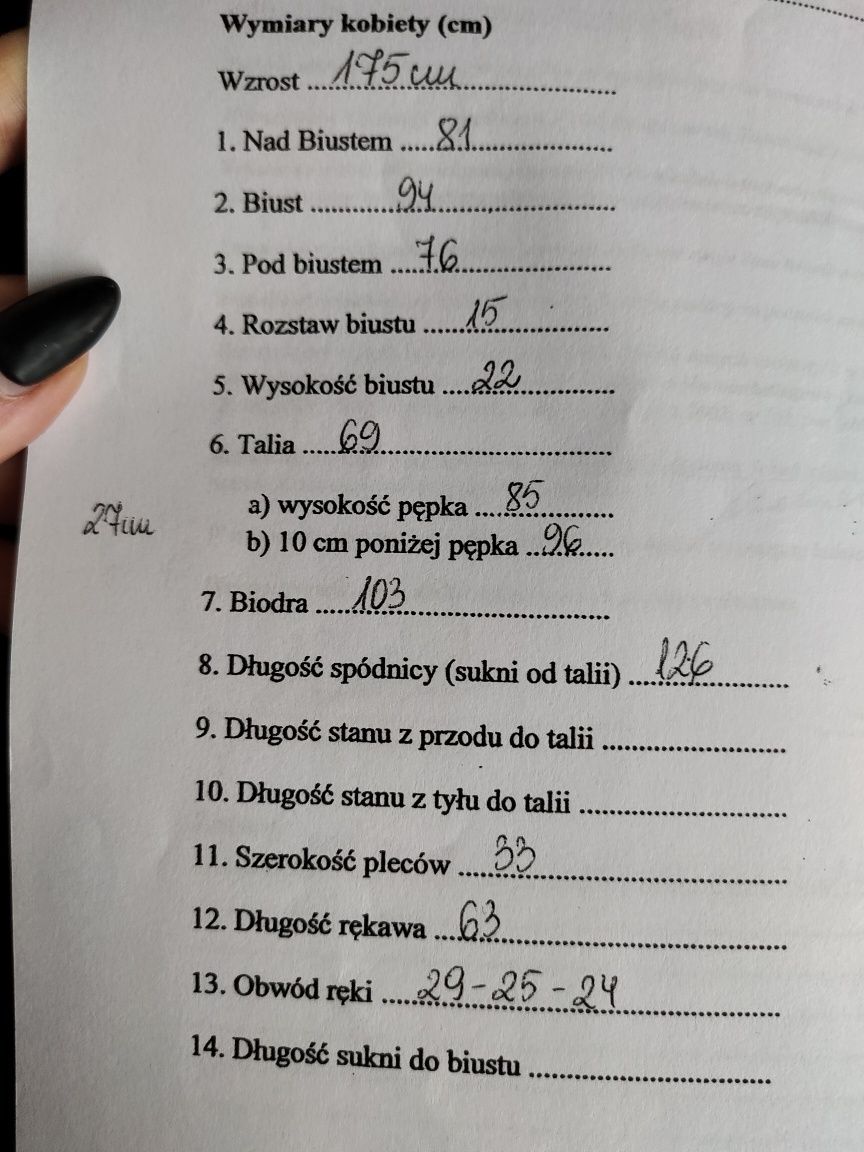 Wymiary kobiety (cm)
Wzrost ....175 cm....
1. Nad Biustem ....81....
2. Biust ....94....
3. Pod biustem ....76....
4. Rozstaw biustu ....15....
5. Wysokość biustu ....22....
6. Talia ....69....
a) wysokość pępka ....85....
27cm
b) 10 cm poniżej pępka ....96....
7. Biodra ....103....
8. Długość spódnicy (sukni od talii) ....126....
9. Długość stanu z przodu do talii ........
10. Długość stanu z tyłu do talii ........
11. Szerokość pleców ....33....
12. Długość rękawa ....63....
13. Obwód ręki ....29-25-24....
14. Długość sukni do biustu ........